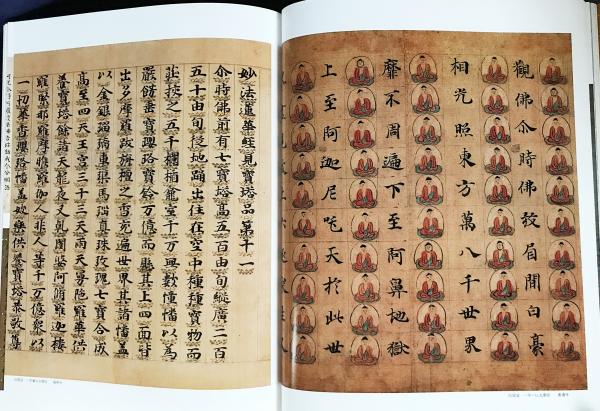 觀佛尒時佛放眉間白豪
相光照東方萬八千世界
靡不周遍下至阿鼻地獄
上至阿迦尼吒天於此世
妙法蓮華經見寶塔品第十一
尒時佛前有七寶塔高五百由旬縱廣二百
五十由旬從地踊出住在空中種種寶物而
莊挍之五千欄楯龕室千万無數幢幡以為
嚴餝垂寶瓔珞寶鈴万億而懸其上四面皆
出多摩羅跋旃檀之香充遍世界其諸幡蓋
以金銀瑠璃車璖馬瑙真珠玫瑰七寶合成
高至四天王宮三十三天雨天曼陁羅華供
養寶塔餘諸天龍夜叉乹闥婆阿脩羅迦樓
羅緊那羅摩睺羅伽人非人等千万億衆以
一切華香瓔珞幡蓋妓樂供養寶塔恭敬尊